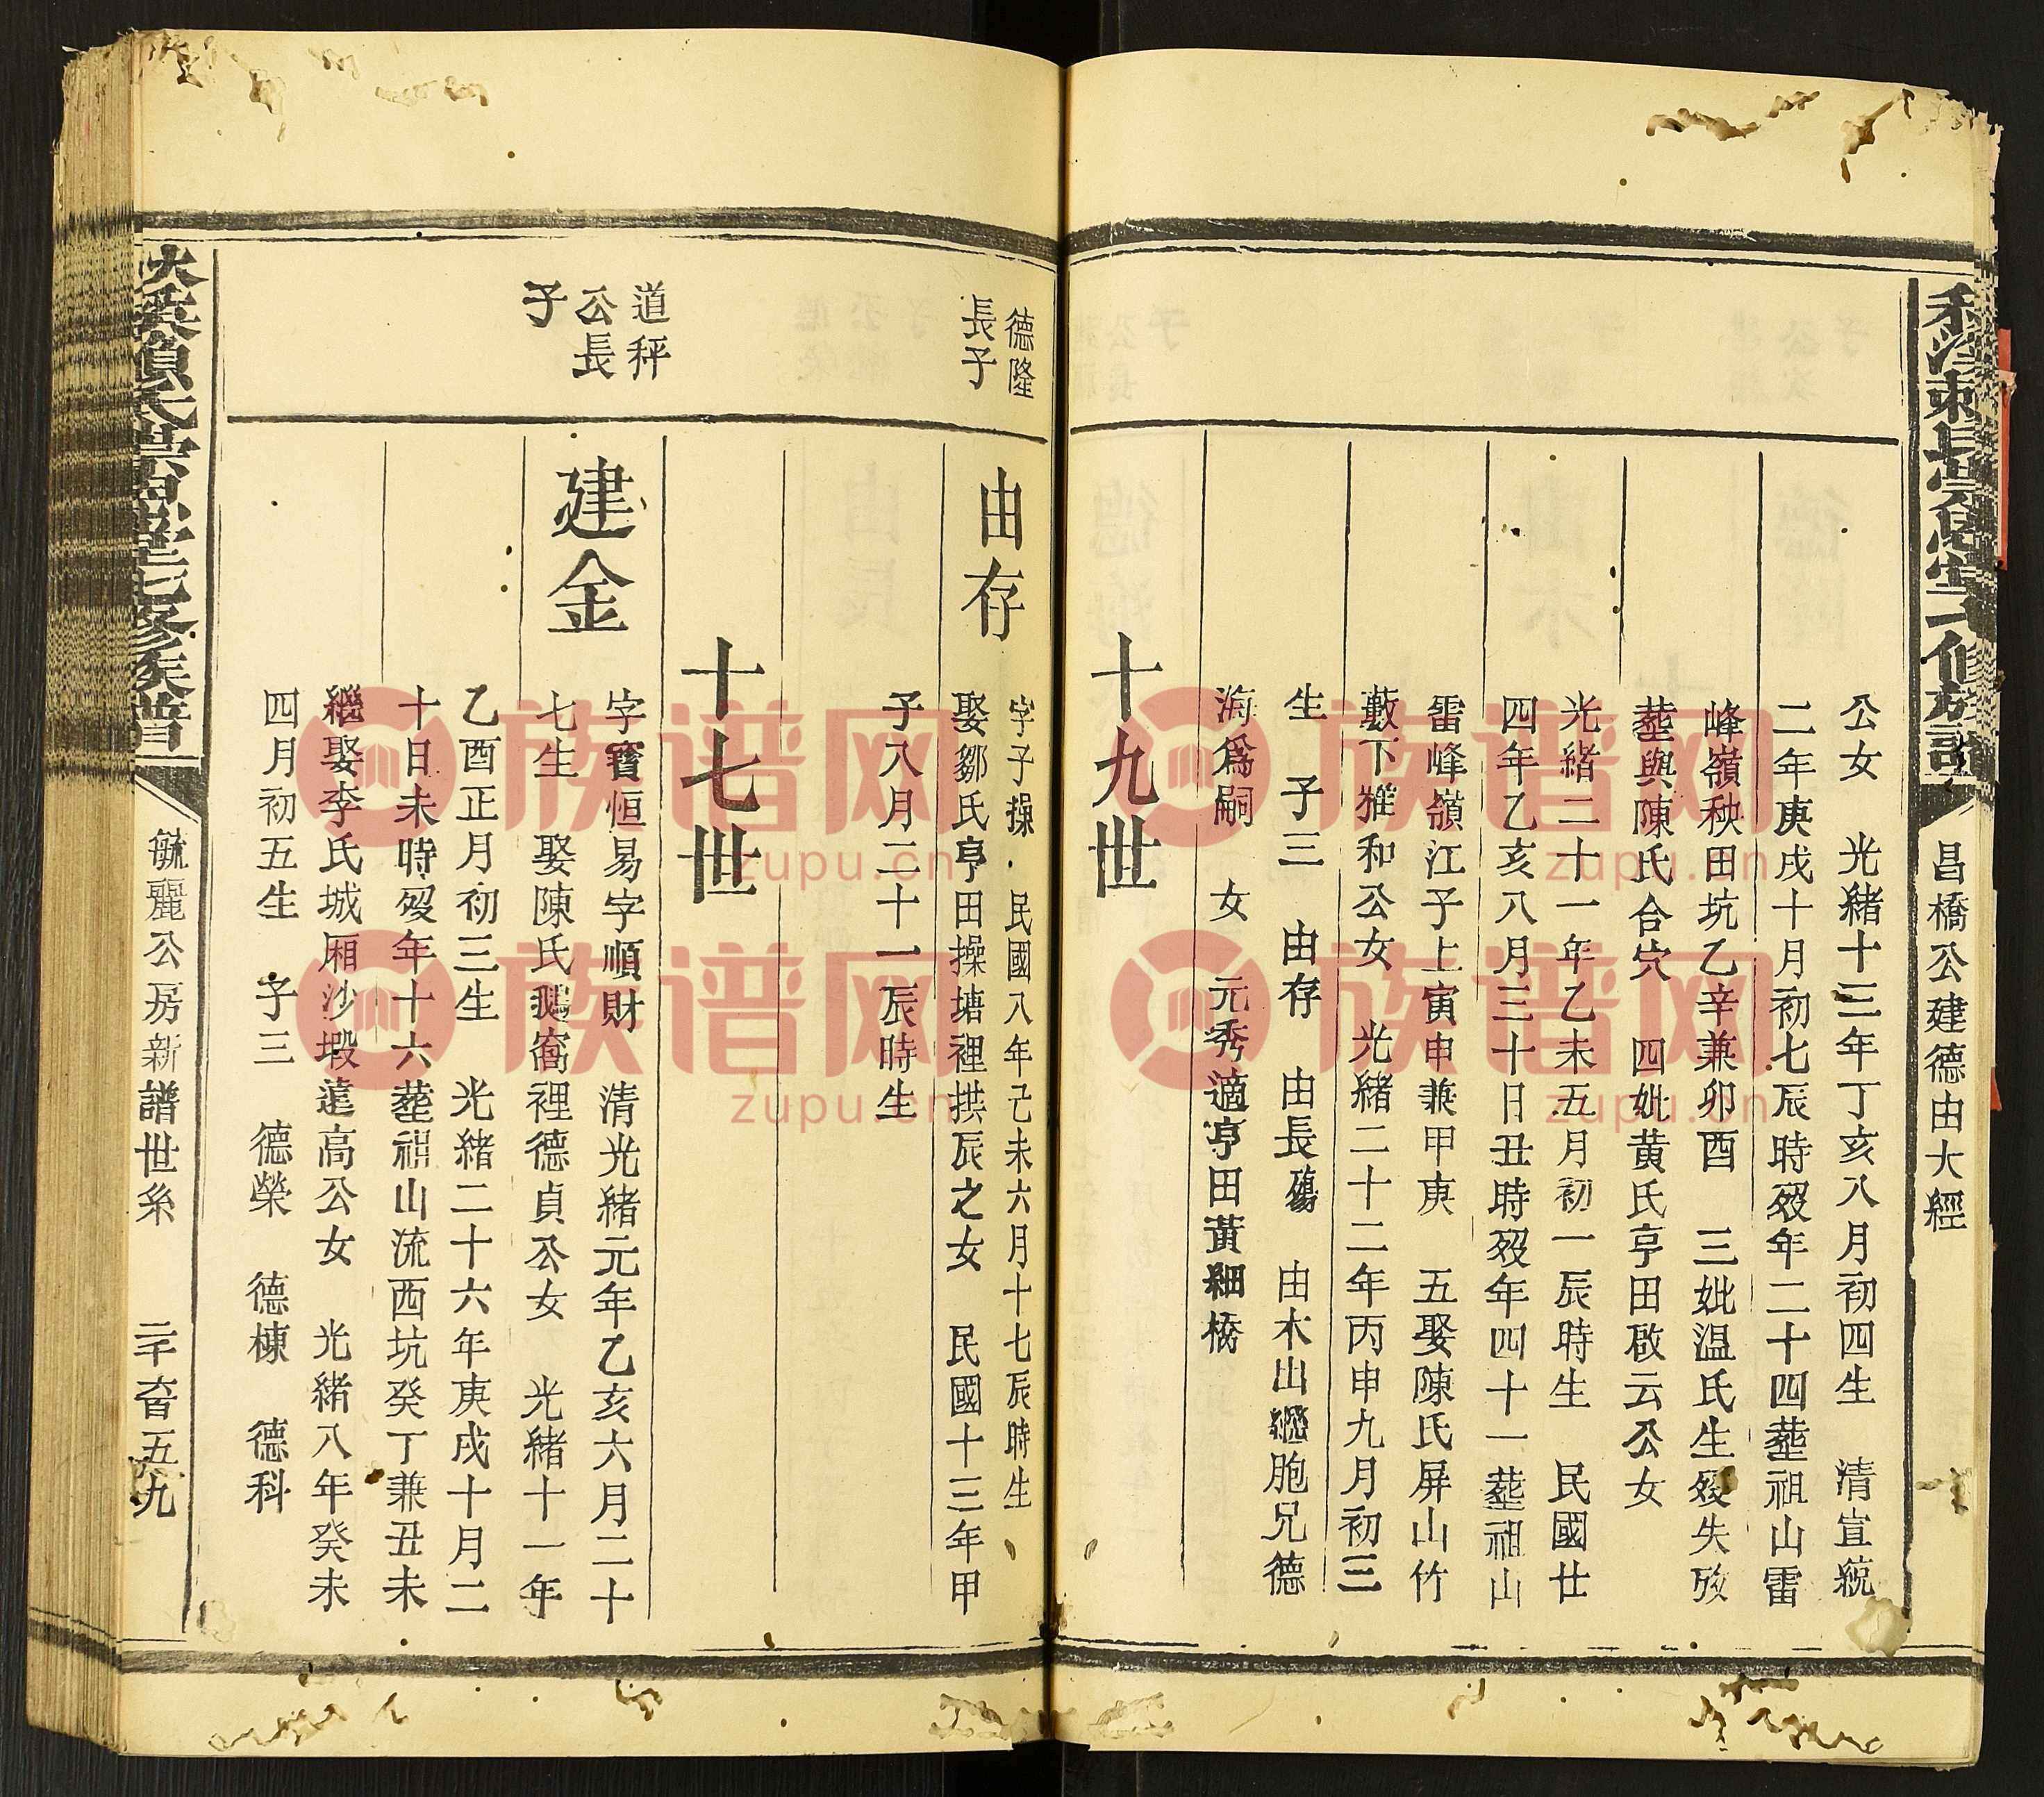 昌橋公建德由大經
公女　光緒十三年丁亥八月初四生　清宣統
二年庚戌十月初七辰時歿年二十四塟祖山雷
峰嶺秧田坑乙辛兼卯酉　三妣温氏生歿失攷
塟與陳氏合穴　四妣黄氏亨田啟云公女
光緒二十一年乙未五月初一辰時生　民國廿
四年乙亥八月三十日丑時歿年四十一塟祖山
雷峰嶺江子上寅申兼甲庚　五娶陳氏屏山竹
藪下雅和公女　光緒二十二年丙申九月初三
生　子三　由存　由長殤　由木出繼胞兄德
海爲嗣　女　元秀適亨田黃細橋
十九世
德隆
長子
由存
字子操　民國八年己未六月十七辰時生
娶鄒氏亨田操塘裡拱辰之女　民國十三年甲
子八月二十一辰時生
十七世
道秤
公長
子
建金
字寶恒易字順財　清光緒元年乙亥六月二十
七生　娶陳氏鵝窩裡德貞公女　光緒十一年
乙酉正月初三生　光緒二十六年庚戌十月二
十日未時歿年十六塟祖山流西坑癸丁兼丑未
繼娶李氏城厢沙塅蓮高公女　光緒八年癸未
四月初五生　子三　德榮　德棟　德科
毓麗公房新譜世系
族谱网
zupu.cn
族谱网
zupu.cn
族谱网
zupu.cn
族谱网
zupu.cn